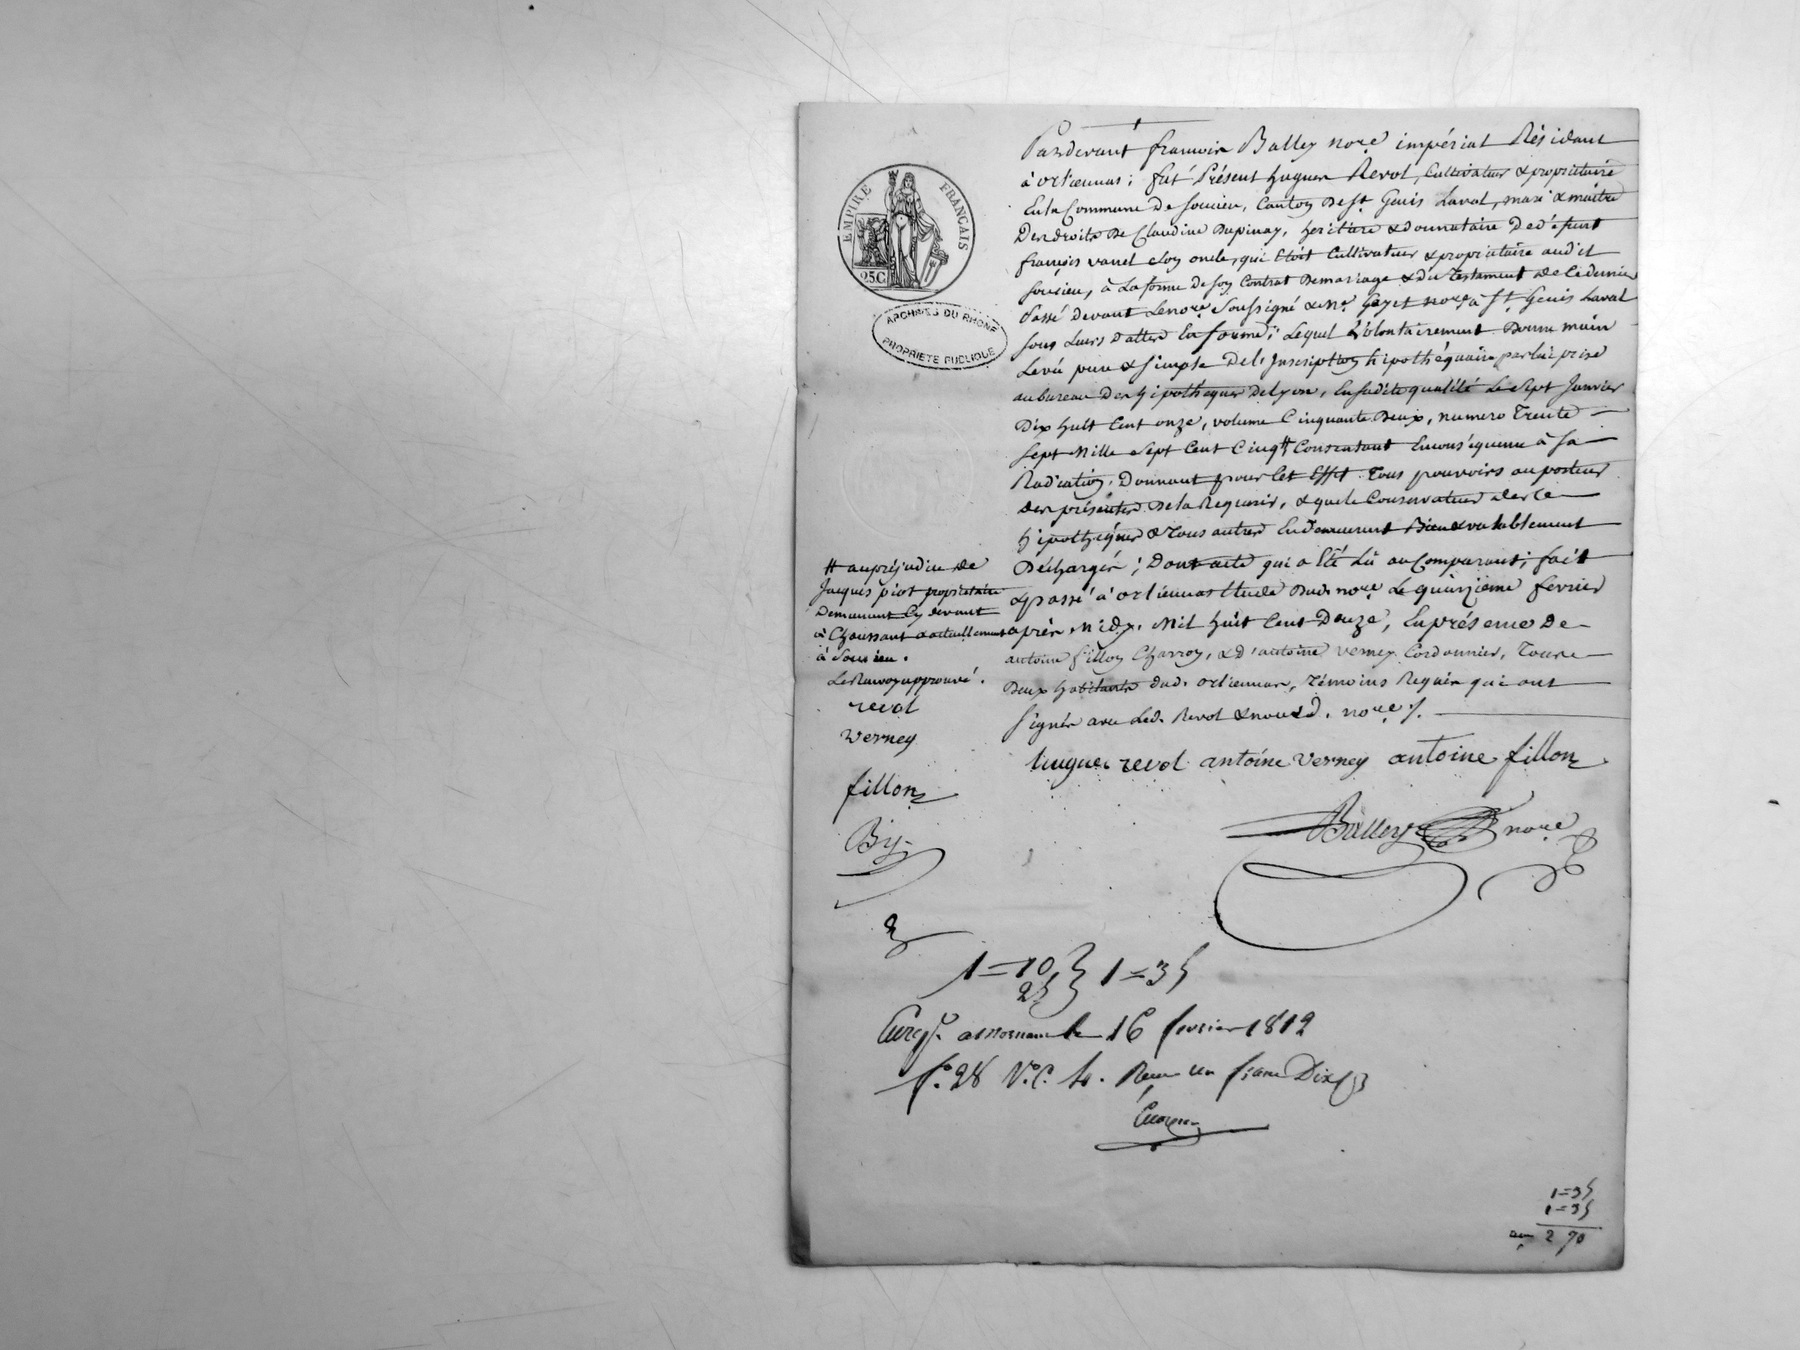 EMPIRE FRANÇAIS
25C
ARCHIVES DU RHONE
PROPRIETE PUBLIQUE
Pardevant francois Balley nore impérial Résidant
à orliennas ; fut Présent hugues Revol, Cultivateur & propriétaire
En la Commune de soucieu, Canton De st Genis Laval, mari & maitre
Des droits De Claudine Dupinay, heritiere & donnataire De défunt
françois vanel son oncle, qui Etoit Cultivateur & propriétaire audit
soucieu, à La forme De son Contrat De mariage & du Testament de Ce dernier
Passé devant Le nore Soussigné & Me Gayet nore à St Genis Laval
sous Leurs Dattes En forme ; Lequel Volontairement Donne main
Levée pure & simple De l'Inscription hipothéquaire par lui prise
au bureau Des hipotheques De Lyon, En sadite qualité Le sept Janvier
Dix huit Cent onze, volume Cinquante Deux, numero Trente
sept Mille sept Cent Cinq # Consentant En conséquence à sa
Radiation, Donnant pour Cet Effet Tous pouvoirs au porteur
des présentes De la Requerir, & que le Conservateur des ce
hipothéques & Tous autres En Demeurent Bien & valablement
Déchargés ; Dont acte qui a Eté Lû au Comparant ; fait
& passé à orliennas Etude Dud. nore Le quinzieme fevrier
après Midy, Mil huit Cent Douze, En présence De
antoine fillon Charron, & d'antoine verney Cordonnier, Tous
Deux habitants dud. orliennas, témoins Requis qui ont
signés avec Led. Revol & nousd. nore /.
# au préjudice de
Jacques piot propriétaire
Demeurant Cy devant
à Chaussant & actuellement
à Soucieu.
Le Renvoy approuvé.
revol
verney
fillon
By
hugues revol antoine verney antoine fillon
Balley nore
1=10 } 1=35
25
Enregt. a Mornant le 16 fevrier 1812
fo. 28 Vo. C. 4. Reçu un franc Dix c
1=35
1=35
2 70